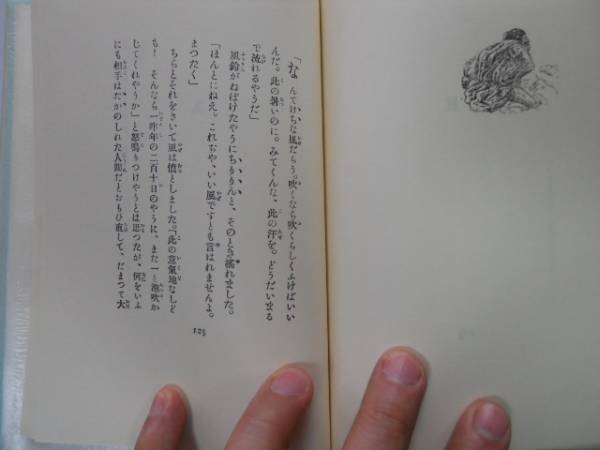 「なんてけちな風だらう。吹くなら吹くらしくふけばいい
んだ。此の暑いのに。みてくんな、此の汗を。どうだいまる
で流れるやうだ」
風鈴がねぼけたやうにちりりんと、そのとき搖れました。
「ほんとにねえ。これぢや、いい風ですとも言はれませんよ。
まつたく」
ちらとそれをきいて風は憤としました。「此の意氣地なしど
も！ そんなら一昨年の二百十日のやうに、また一と泡吹か
じてくれやうか」と怒鳴りつけやうとは思つたが、何をいふ
にも相手はたかのしれた人間だとおもひ直して、だまつて大
125